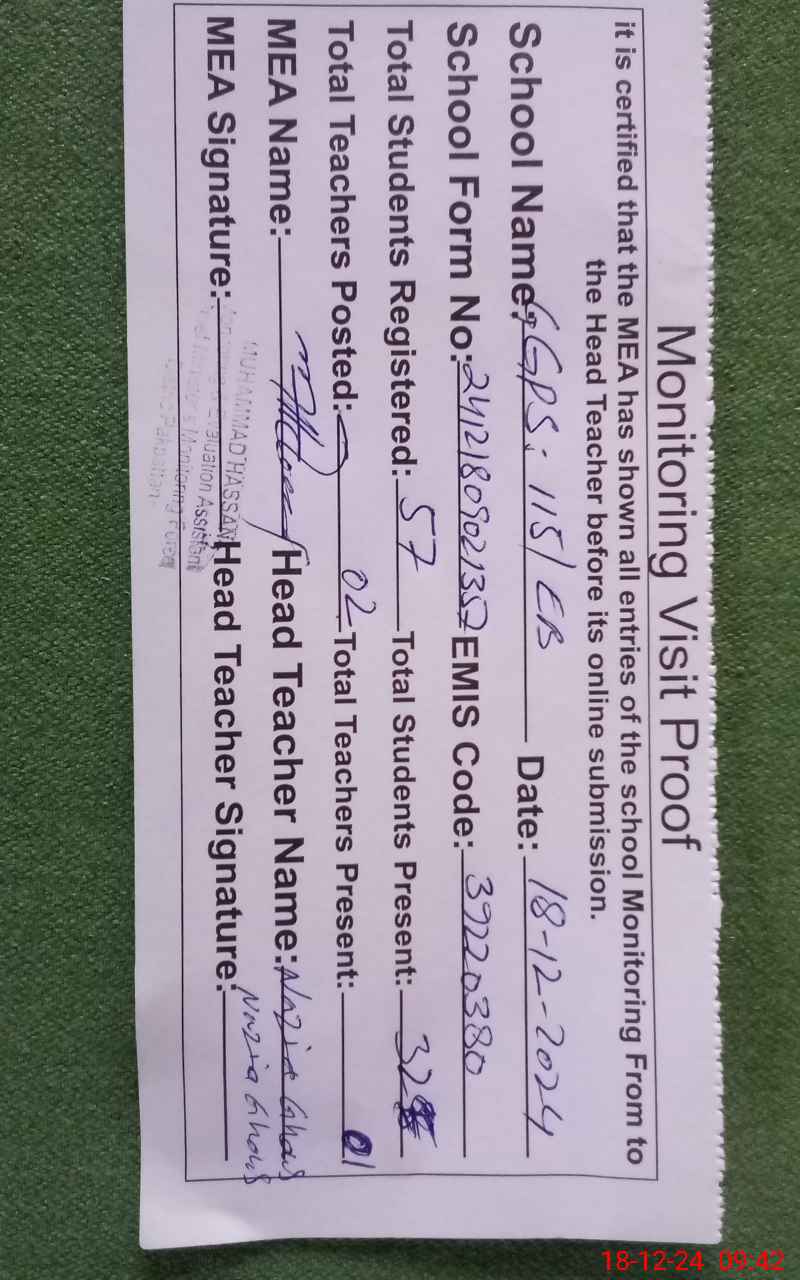 Monitoring Visit Proof
it is certified that the MEA has shown all entries of the school Monitoring From to
the Head Teacher before its online submission.
School Name: GGPS; 115/EB Date: 18-12-2024
School Form No: 2412180902135 EMIS Code: 39220380
Total Students Registered: 57 Total Students Present: 32
Total Teachers Posted: 02 Total Teachers Present: 01
MEA Name: Head Teacher Name: Nazia Ghous
MEA Signature: Head Teacher Signature: Nazia Ghous
MUHAMMAD HASSAN
Evaluation Assistant
Monitoring
Pakpattan
18-12-24 09:42